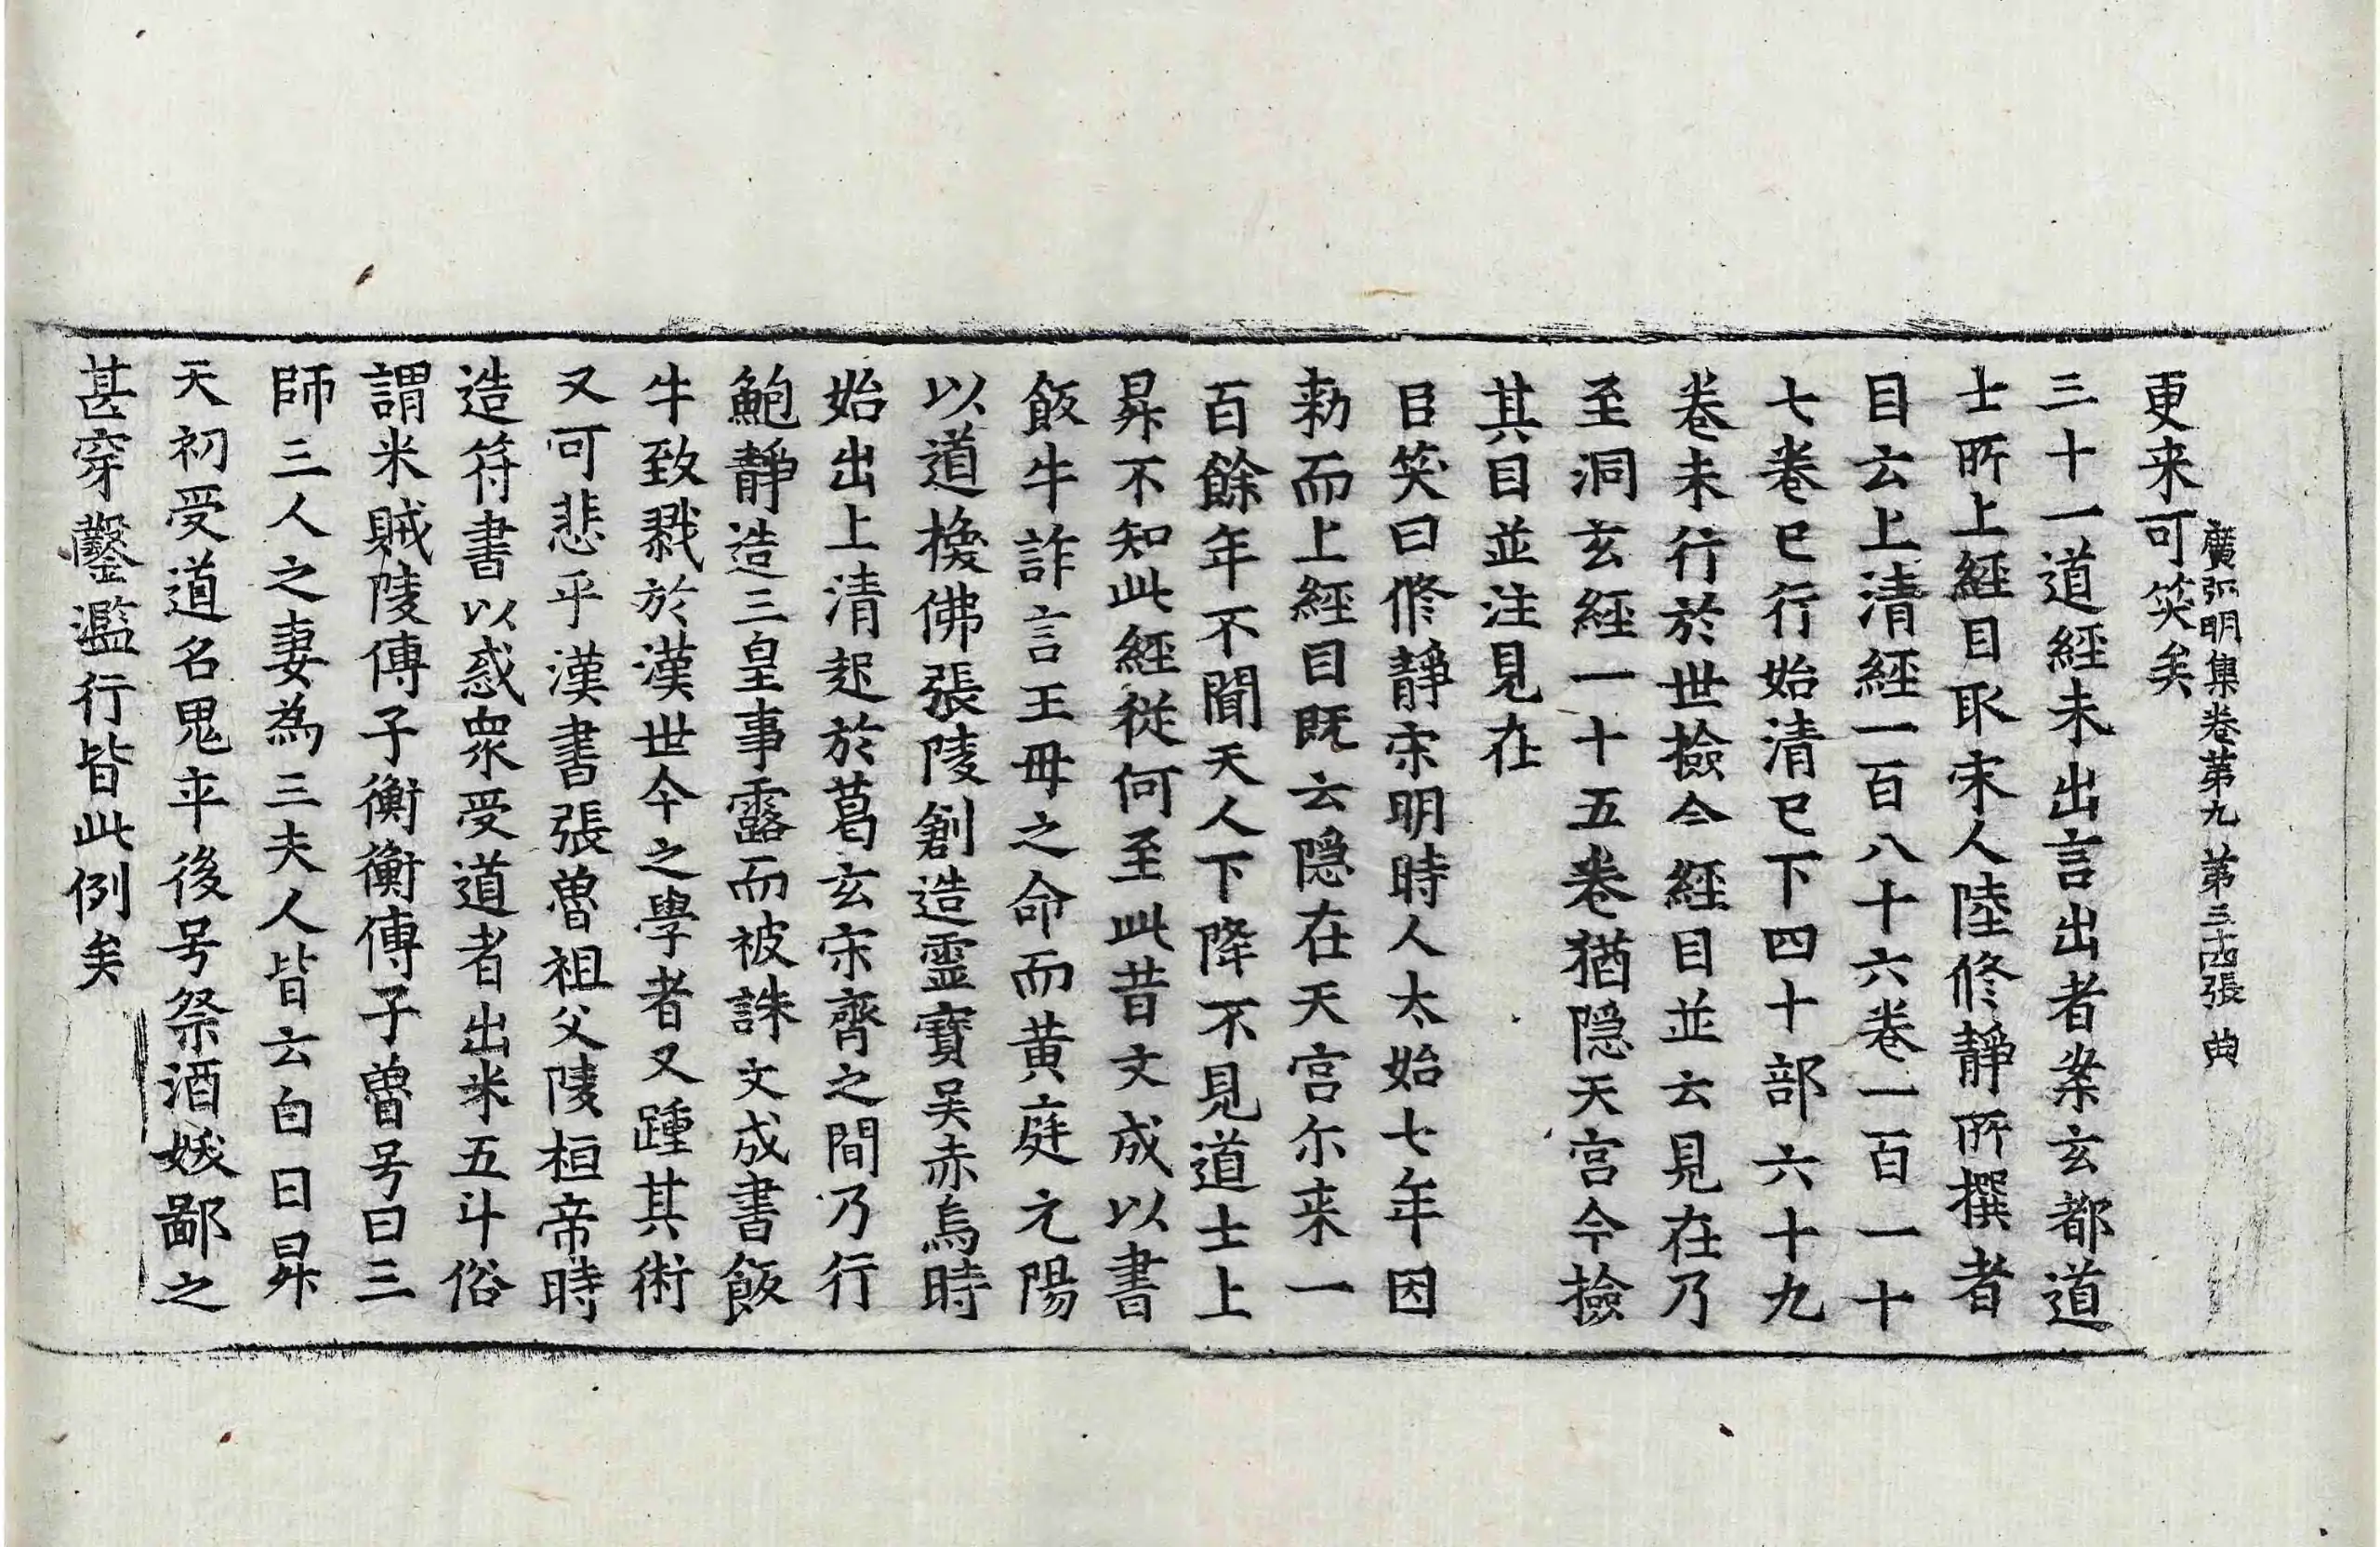 廣弘明集卷第九 第三十四張 典
更来可笑矣
三十一道經未出言出者案玄都道
士所上經目取宋人陸修靜所撰者
目云上清經一百八十六卷一百一十
七卷已行始清已下四十部六十九
卷未行於世撿今經目並云見在乃
至洞玄經一十五卷猶隱天宮今撿
其目並注見在
臣笑曰修靜宋明時人太始七年因
勑而上經目既云隱在天宮尒来一
百餘年不聞天人下降不見道士上
昇不知此經從何至此昔文成以書
飯牛詐言王母之命而黃庭元陽
以道換佛張陵創造靈寶吳赤烏時
始出上清起於葛玄宋齊之間乃行
鮑靜造三皇事露而被誅文成書飯
牛致戮於漢世今之學者又踵其術
又可悲乎漢書張魯祖父陵桓帝時
造符書以惑衆受道者出米五斗俗
謂米賊陵傳子衡衡傳子魯号曰三
師三人之妻為三夫人皆云白日昇
天初受道名鬼卒後号祭酒妖鄙之
甚穿鑿濫行皆此例矣